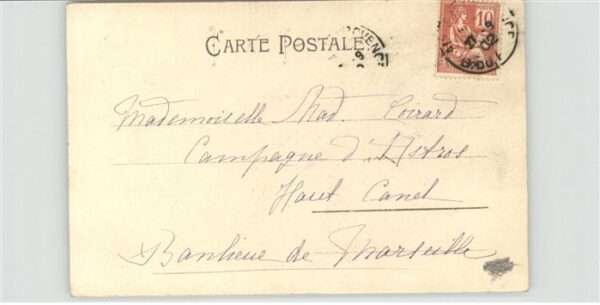 CARTE POSTALE
10
Mademoiselle Mad. Coirard
Campagne d'Astros
Haut Canet
Banlieue de Marseille